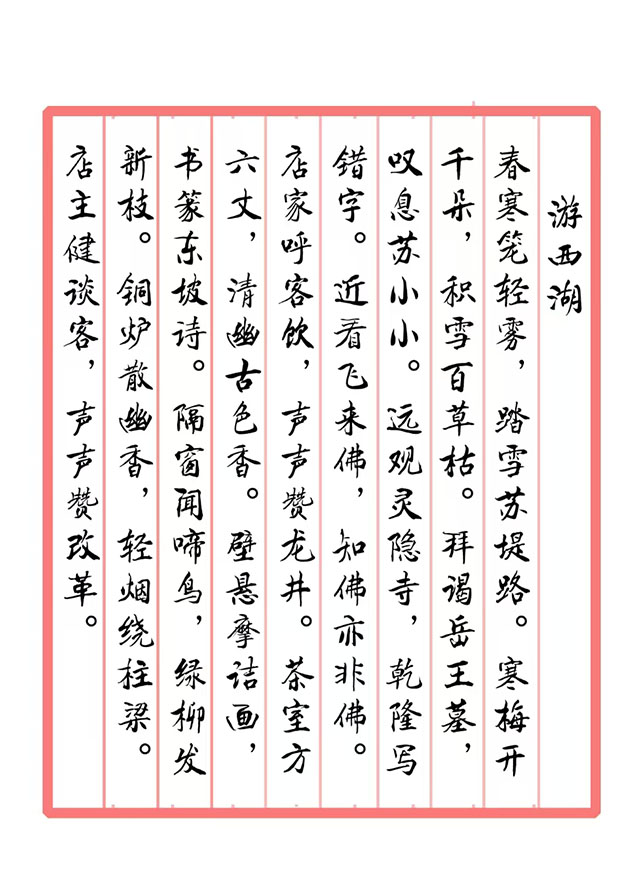 游西湖
春寒笼轻雾，踏雪苏堤路。寒梅开
千朵，积雪百草枯。拜谒岳王墓，
叹息苏小小。远观灵隐寺，乾隆写
错字。近看飞来佛，知佛亦非佛。
店家呼客饮，声声赞龙井。茶室方
六丈，清幽古色香。壁悬摩诘画，
书篆东坡诗。隔窗闻啼鸟，绿柳发
新枝。铜炉散幽香，轻烟绕柱梁。
店主健谈客，声声赞改革。